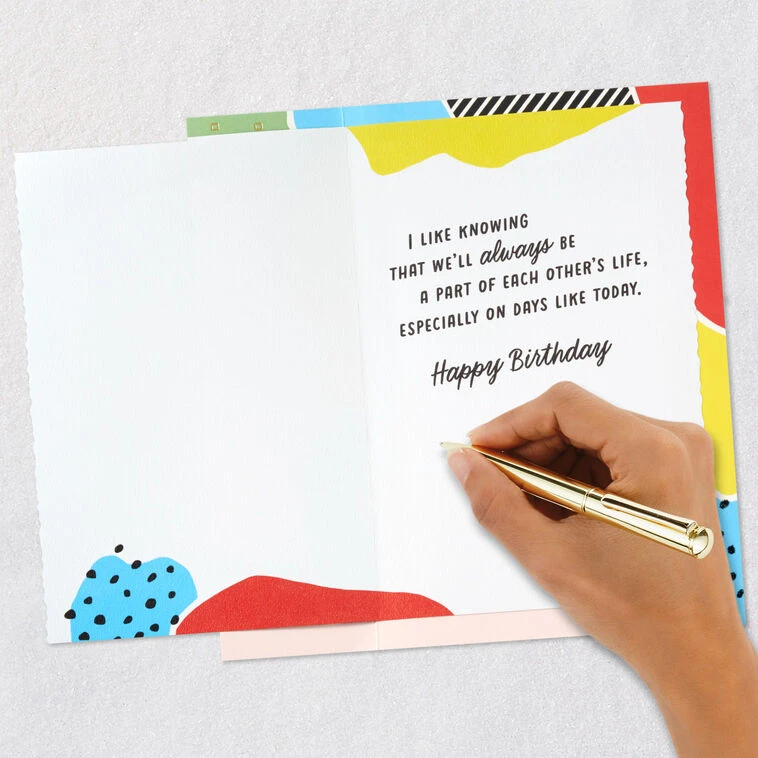 I LIKE KNOWING
THAT WE'LL always BE
A PART OF EACH OTHER'S LIFE,
ESPECIALLY ON DAYS LIKE TODAY.
Happy Birthday